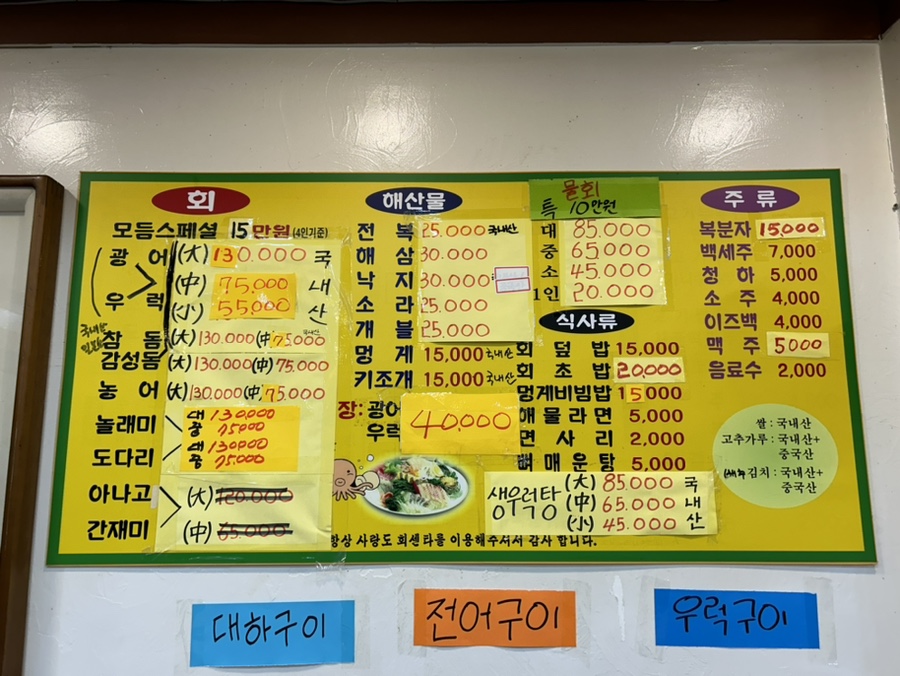 회
모듬스페셜 15만원 (4인기준)
광어 (大) 130.000 국
(中) 75,000 내
우럭 (小) 55.000 산
국내산
참돔 (大) 130.000 (中) 75.000
감성돔 (大) 130.000 (中) 75.000
농어 (大) 130.000 (中) 75.000
놀래미 대 130.000
중 75.000
도다리 대 130000
중 75.000
아나고 (大) 120.000
간재미 (中) 65.000
해산물
전복 25.000 국내산
해삼 30.000
낙지 30.000
소라 25.000
개불 25.000
멍게 15,000 국내산
키조개 15,000 국내산
장: 광어
우럭
40.000
물회
특 10만원
대 85.000
중 65.000
소 45.000
1인 20.000
식사류
회덮밥 15,000
회초밥 20,000
멍게비빔밥 15000
해물라면 5,000
면사리 2,000
뼈매운탕 5,000
생우럭탕 (大) 85.000 국
(中) 65.000 내
(小) 45.000 산
항상 사랑도 회센타를 이용해주셔서 감사 합니다.
주류
복분자 15,000
백세주 7,000
청하 5,000
소주 4,000
이즈백 4,000
맥주 5000
음료수 2,000
쌀 : 국내산
고추가루 : 국내산+
중국산
김치 : 국내산+
중국산
대하구이
전어구이
우럭구이